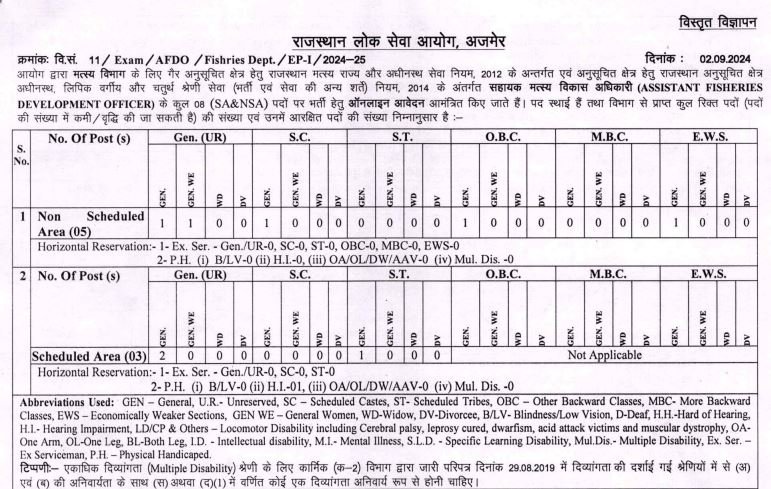 विस्तृत विज्ञापन
राजस्थान लोक सेवा आयोग, अजमेर
क्रमांकः वि.सं. 11/ Exam/AFDO /Fishries Dept./EP-I/2024-25 दिनांक : 02.09.2024
आयोग द्वारा मत्स्य विभाग के लिए गैर अनुसूचित क्षेत्र हेतु राजस्थान मत्स्य राज्य और अधीनस्थ सेवा नियम, 2012 के अन्तर्गत एवं अनुसूचित क्षेत्र हेतु राजस्थान अनुसूचित क्षेत्र
अधीनस्थ, लिपिक वर्गीय और चतुर्थ श्रेणी सेवा (भर्ती एवं सेवा की अन्य शर्तें) नियम, 2014 के अंतर्गत सहायक मत्स्य विकास अधिकारी (ASSISTANT FISHERIES
DEVELOPMENT OFFICER) के कुल 08 (SA&NSA) पदों पर भर्ती हेतु ऑनलाइन आवेदन आमंत्रित किए जाते हैं। पद स्थाई हैं तथा विभाग से प्राप्त कुल रिक्त पदों (पदों
की संख्या में कमी/वृद्धि की जा सकती है) की संख्या एवं उनमें आरक्षित पदों की संख्या निम्नानुसार है :–
S. No. No. Of Post (s) Gen. (UR) S.C. S.T. O.B.C. M.B.C. E.W.S.
GEN. GEN. WE WD DV GEN. GEN. WE WD DV GEN. GEN. WE WD DV GEN. GEN. WE WD DV GEN. GEN. WE WD DV GEN. GEN. WE WD DV
1 Non Scheduled Area (05) 1 1 0 0 1 0 0 0 0 0 0 0 1 0 0 0 0 0 0 0 1 0 0 0
Horizontal Reservation:- 1- Ex. Ser. - Gen./UR-0, SC-0, ST-0, OBC-0, MBC-0, EWS-0
2- P.H. (i) B/LV-0 (ii) H.I.-0, (iii) OA/OL/DW/AAV-0 (iv) Mul. Dis. -0
2 No. Of Post (s) Gen. (UR) S.C. S.T. O.B.C. M.B.C. E.W.S.
GEN. GEN. WE WD DV GEN. GEN. WE WD DV GEN. GEN. WE WD DV GEN. GEN. WE WD DV GEN. GEN. WE WD DV GEN. GEN. WE WD DV
Scheduled Area (03) 2 0 0 0 0 0 0 0 1 0 0 0 Not Applicable
Horizontal Reservation:- 1- Ex. Ser. - Gen./UR-0, SC-0, ST-0
2- P.H. (i) B/LV-0 (ii) H.I.-01, (iii) OA/OL/DW/AAV-0 (iv) Mul. Dis. -0
Abbreviations Used: GEN – General, U.R.- Unreserved, SC – Scheduled Castes, ST- Scheduled Tribes, OBC – Other Backward Classes, MBC- More Backward
Classes, EWS – Economically Weaker Sections, GEN WE – General Women, WD-Widow, DV-Divorcee, B/LV- Blindness/Low Vision, D-Deaf, H.H.-Hard of Hearing,
H.I.- Hearing Impairment, LD/CP & Others – Locomotor Disability including Cerebral palsy, leprosy cured, dwarfism, acid attack victims and muscular dystrophy, OA-
One Arm, OL-One Leg, BL-Both Leg, I.D. - Intellectual disability, M.I.- Mental Illness, S.L.D. - Specific Learning Disability, Mul.Dis.- Multiple Disability, Ex. Ser. –
Ex Serviceman, P.H. – Physical Handicaped.
टिप्पणीः– एकाधिक दिव्यांगता (Multiple Disability) श्रेणी के लिए कार्मिक (क–2) विभाग द्वारा जारी परिपत्र दिनांक 29.08.2019 में दिव्यांगता की दर्शाई गई श्रेणियों में से (अ)
एवं (ब) की अनिवार्यता के साथ (स) अथवा (द)(1) में वर्णित कोई एक दिव्यांगता अनिवार्य रूप से होनी चाहिए।